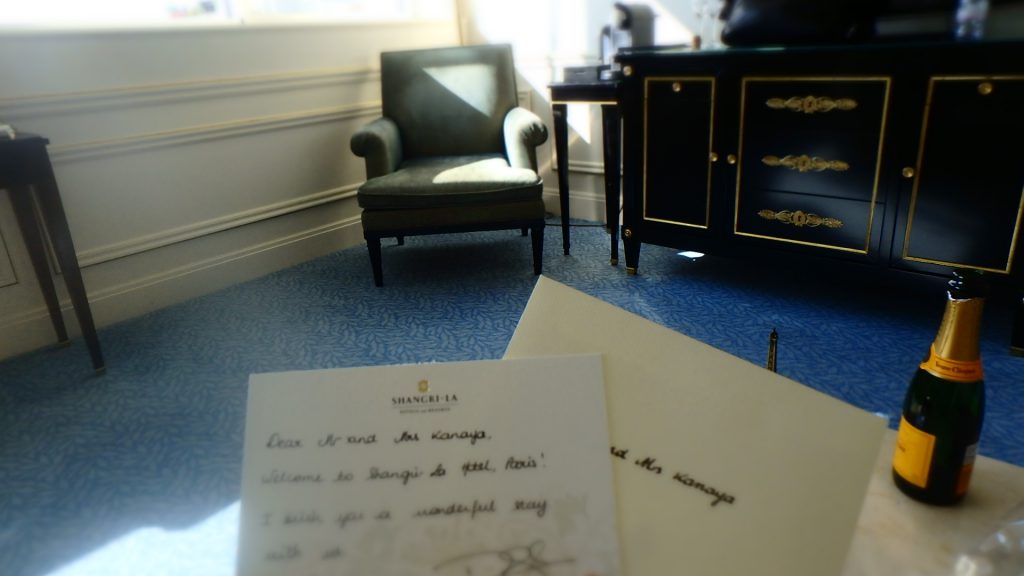 SHANGRI-LA
HOTELS and RESORTS
Dear Mr and Mrs Kanaya,
Welcome to Shangri-La Hotel, Paris!
I wish you a wonderful stay
with us
Mrs Kanaya
Veuve Clicquot